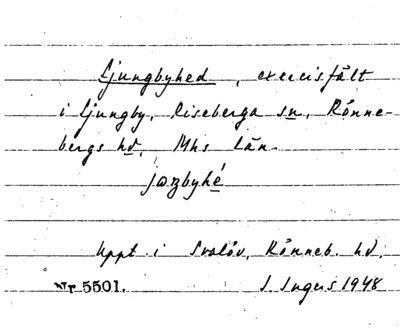 Ljungbyhed, exercisfält
i Ljungby, Riseberga sn, Rönne-
bergs hd, Mhs län.
jɷŋbyhé
Uppt. i Svalöv, Rönneb. hd,
Nr 5501. J. Ingers 1948